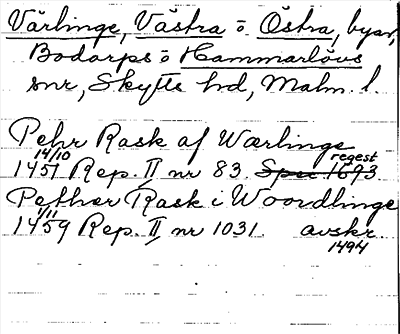 Värlinge, Västra o. Östra, byar,
Bodarps o Hammarlövs
snr, Skytts hd, Malm. l.
Pehr Rask af Wærlinge
14/10 regest
1451 Rep. II nr 83. Spec 1693
Pether Rask i Woordlinge
1/11
1459 Rep. II nr 1031. avskr.
1494